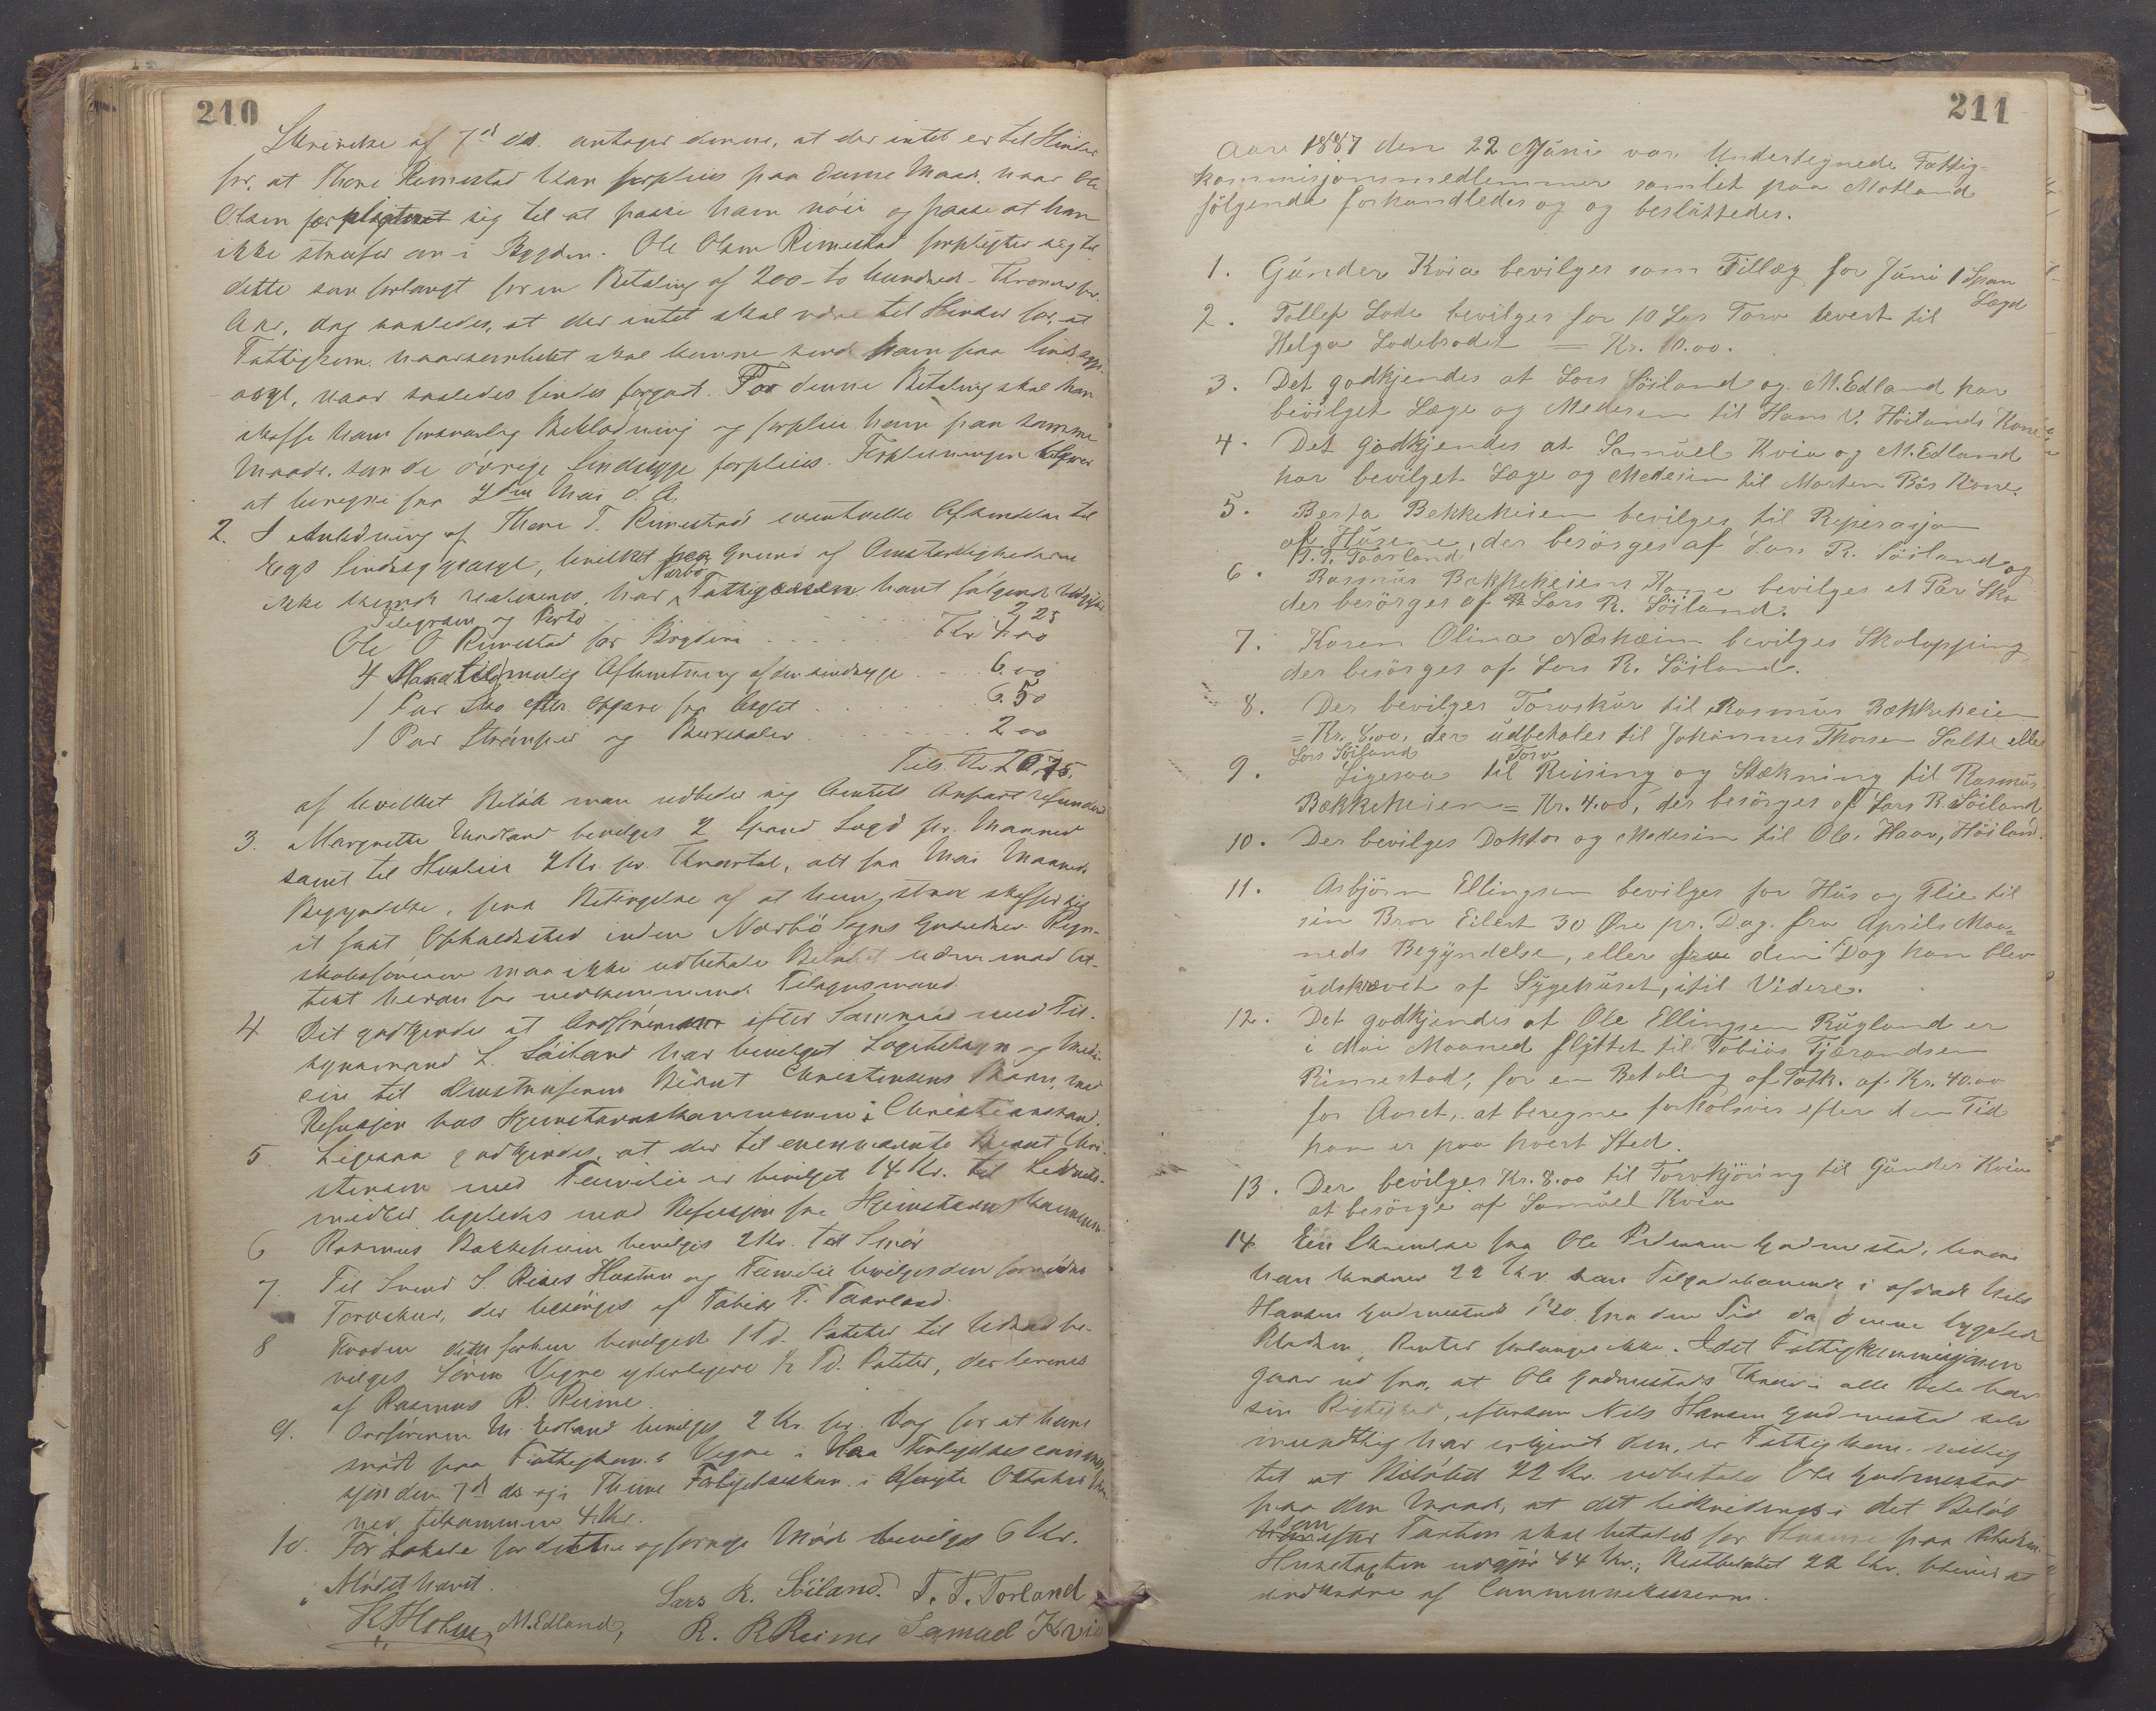 210
Skrivelse af 7de ds. antager denne, at der intet er til Hinder
for, at Thore Rimestad kan forpleies paa denne Maade, naar Ole
Olsen forpligter sig til at passe ham nöie og passe at han
ikke streifer om i Bygden. Ole Olsen Rimestad forpligter sig til
dette som forlangt for en Betaling af 200 - to hundrede - Kroner pr.
Aar, dog saaledes, at der intet skal være til Hinder for, at
Fattigkom. naarsomhelst skal kunne sende ham paa Sindssyge-
asyl, naar saaledes findes forgodt. For denne Betaling skal han
skaffe ham forsvarlig Beklædning og forpleie ham paa samme
Maade som de övrige Sindssyge forpleies. Forpleiningen
at beregne fra 7de Mai d. A.
2. I Anledning af Thore T. Rimestads eventuelle Afsendelse til
Eegs Sindssygeasyl, hvilket paa Grund af Omstændighederne
ikke, har Nærbö Fattigvæsen havt fölgende Udgifter
Telegram og Porto 2.25
Ole O Rimestad for Brydderi Kr 4.00
4 Mand til mulig Afhentning af den sindssyge 6.00
1 Par Sko efter Opgave fra Asylet 6.50
1 Par Strömper og 2.00
Tils. Kr. 20.75.
af hvilket Belöb man udbeder sig Amtets Anpart refunderet
3. Margrethe bevilges 2 Spand Lægd pr. Maaned
samt til Husleie 2 Kr. pr. Kvartal, alt fra Mai Maaneds
Begyndelse, paa Betingelse af at hun strax skaffer sig
et fast Opholdssted inden Nærbö Sogns Grændser. Regn-
skabsföreren maa ikke udbetale Belöbet uden med At-
test herom fra vedkommende Tilsynsmand.
4 Det godkjendes at Ordföreren efter Samraad med Til-
synsmand L. Söiland har bevilget Lægetilsyn og Medi-
cin til Berent Christensens Barn, med
Refusjon hos Hjemstavnskommunen: Christianssand.
5 Ligesaa godkjendes, at der til ovennævnte Berent Chri-
stensen med Familie er bevilget 14 Kr. til Livsets-
midler ligeledes med Refusjon fra Hjemstavnskommunen
6 Rasmus Bakkeheim bevilges 2 Kr. til Smör
7 Til Svend S. Risas Hustru og Familie bevilges den fornödne
Torvskur, der besörges af Tobias T. Taarland.
8 Foruden dette forhen bevilgede 1 Td. Poteter til Udsæd be-
vilges Sören Vigre yderligere ½ Td. Poteter, der leveres
af Rasmus R. Reime.
9. Ordföreren M. Edland bevilges 2 Kr. pr. Dag for at have
mödt paa Fattigkom.s Vegne i Haa Forligelseskommis-
sjon den 7de ds og i Thime Forligelseskom. i Afvigte Oktober Maa-
ned tilsammen 4 Kr.
10. For Lokale for dette og forrige Möde bevilges 6 Kr.
Mödet hævet.
Lars R. Söiland. T. T. Torland
M. Edland, R. R Reime Samuel Kvia
211
Aar 1887 den 22 Júni var Undertegnede Fattig-
kommisjonsmedlemmer samlet paa Motland
fölgende forhandledes og og beslúttedes.
1. Gúnder Kvia bevilges som Tillæg for Júni 1 Span
Lægd
2. Tollef Lode bevilges for 10 Les Torv levert til
Helga Lodebrodet = Kr. 10.00.
3. Det godkjendes at Lars Söiland og M. Edland har
bevilget Læge og Medesin til Hans V. Höilands Kone
4. Det godkjendes at Samúel Kvia og M. Edland
har bevilget Læge og Medesin til Morten Bös Kone.
5. Berta Bekkeheien bevilges til Reperasjon
af Húsene, der besörges af Lars R. Söiland og
T. T. Taarland
6. Rasmús Bakkeheiens Kone bevilges et Par Sko
der besörges af Lars R. Söiland.
7. Karen Olina Næsheim bevilges Skolapping
der besörges af Lars R. Söiland.
8. Der bevilges Torvskúr til Rasmús Bækkeheien
= Kr. 8.00, der údbetales til Johannes Thorsen Salte eller
Lars Söiland
9. Ligesaa til Torv Reising og Stækning til Rasmús
Bækkeheien = Kr. 4.00, der besörges af Lars R. Söiland
10. Der bevilges Doktor og Medesin til Ole Haar, Höiland.
11. Asbjörn Ellingsen bevilges for Hús og Plie til
sin Bror Eilert 30 Öre pr. Dag fra Aprils Maa=
neds Begyndelse, eller fra den Dag han blev
údskrevet af Sygehúset, itil Videre.
12. Det godkjendes at Ole Ellingsen Rúgland er
i Mai Maaned flyttet til Tobias Tjærandsen
Rimestad, for en Betaling af Fatk. af Kr. 40.00
for Aaret, at beregne forholsvis efter den Tid
han er paa hvert Sted.
13. Der bevilges Kr. 8.00 til Torvkjöring til Gúnder Kvia
at besörge af Samúel Kvia
14 En Skrivelse fra Ole Pedersen Gudmestad, hvori
han fordrer 22 Kr. som Tilgodehavende i afdöde Nils
Hansen Gudmestads Bo fra den Tid da denne byggede
Pladsen. Renter forlanges ikke. Idet Fattigkommisjonen
gaar ud fra, at Ole Gudmestads Krav i alle Dele har
sin Rigtighed, eftersom Nils Hansen Gudmestad selv
mundtlig har erkjendt den, er Fattigkom. villig
til at Belöbet 22 Kr. udbetales Ole Gudmestad
paa den Maade, at det likvideres i det Belöb
som efter Taxten skal betales for Husene paa Pladsen.
Husetaxten udgjör 44 Kr.; Restbelöbet 22 Kr. bliver at
udrede af Communekassen.